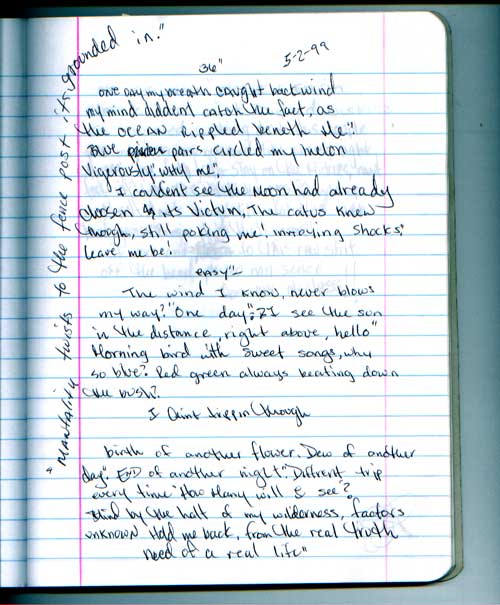 5-2-99
36"
one day my breath caught backwind
my mind diddent catch the fact, as
the OCEAN Rippled beneth the".
Blue pairs circled my melon
Vigerously "why me",
I couldent see the Moon had already
choosen its Victum, The catus knew
though, still poking me!, innoying shocks,
leave me be!
easy"-
The wind I know, never blows
my way? "One day". I see the sun
in the distance, right above, hello"
Morning bird with sweet songs, why
so blue? Red green always beating down
the bush?
I aint trippin though
birth of another flower. Dew of another
day". END of another night". Diffrent trip
every time "How Many will I see"?
Blind by the half of my wilderness, factors
unknown Hold me back, from the real truth
need of a real life"
"Mantality twists to the fence post its grounded in."